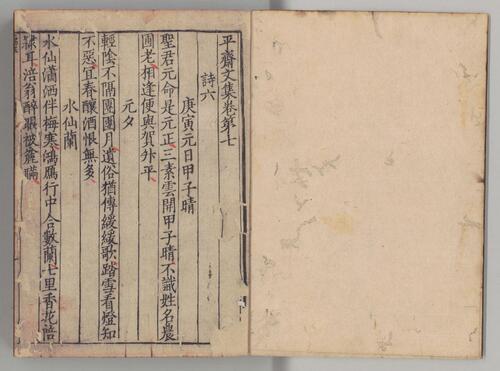 平齋文集卷第七
詩六
庚寅元日甲子晴
聖君元命是元正三素雲開甲子晴不識姓名農
圃老相逢便與賀升平
元夕
輕陰不隔團團月遺俗猶傳緩緩歌踏雪看燈知
不惡宜春釀酒恨無多
水仙蘭
水仙瀟洒伴梅寒鴻鴈行中合數蘭七里香花陪
隸耳涪翁醉眼被簏瞞